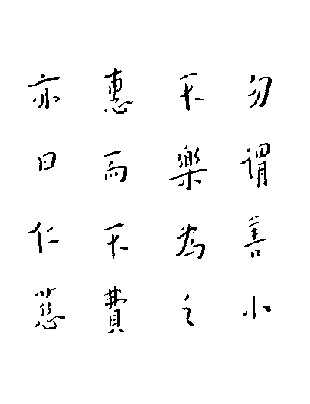 勿謂善小
不樂為之
惠而不費
亦曰仁慈